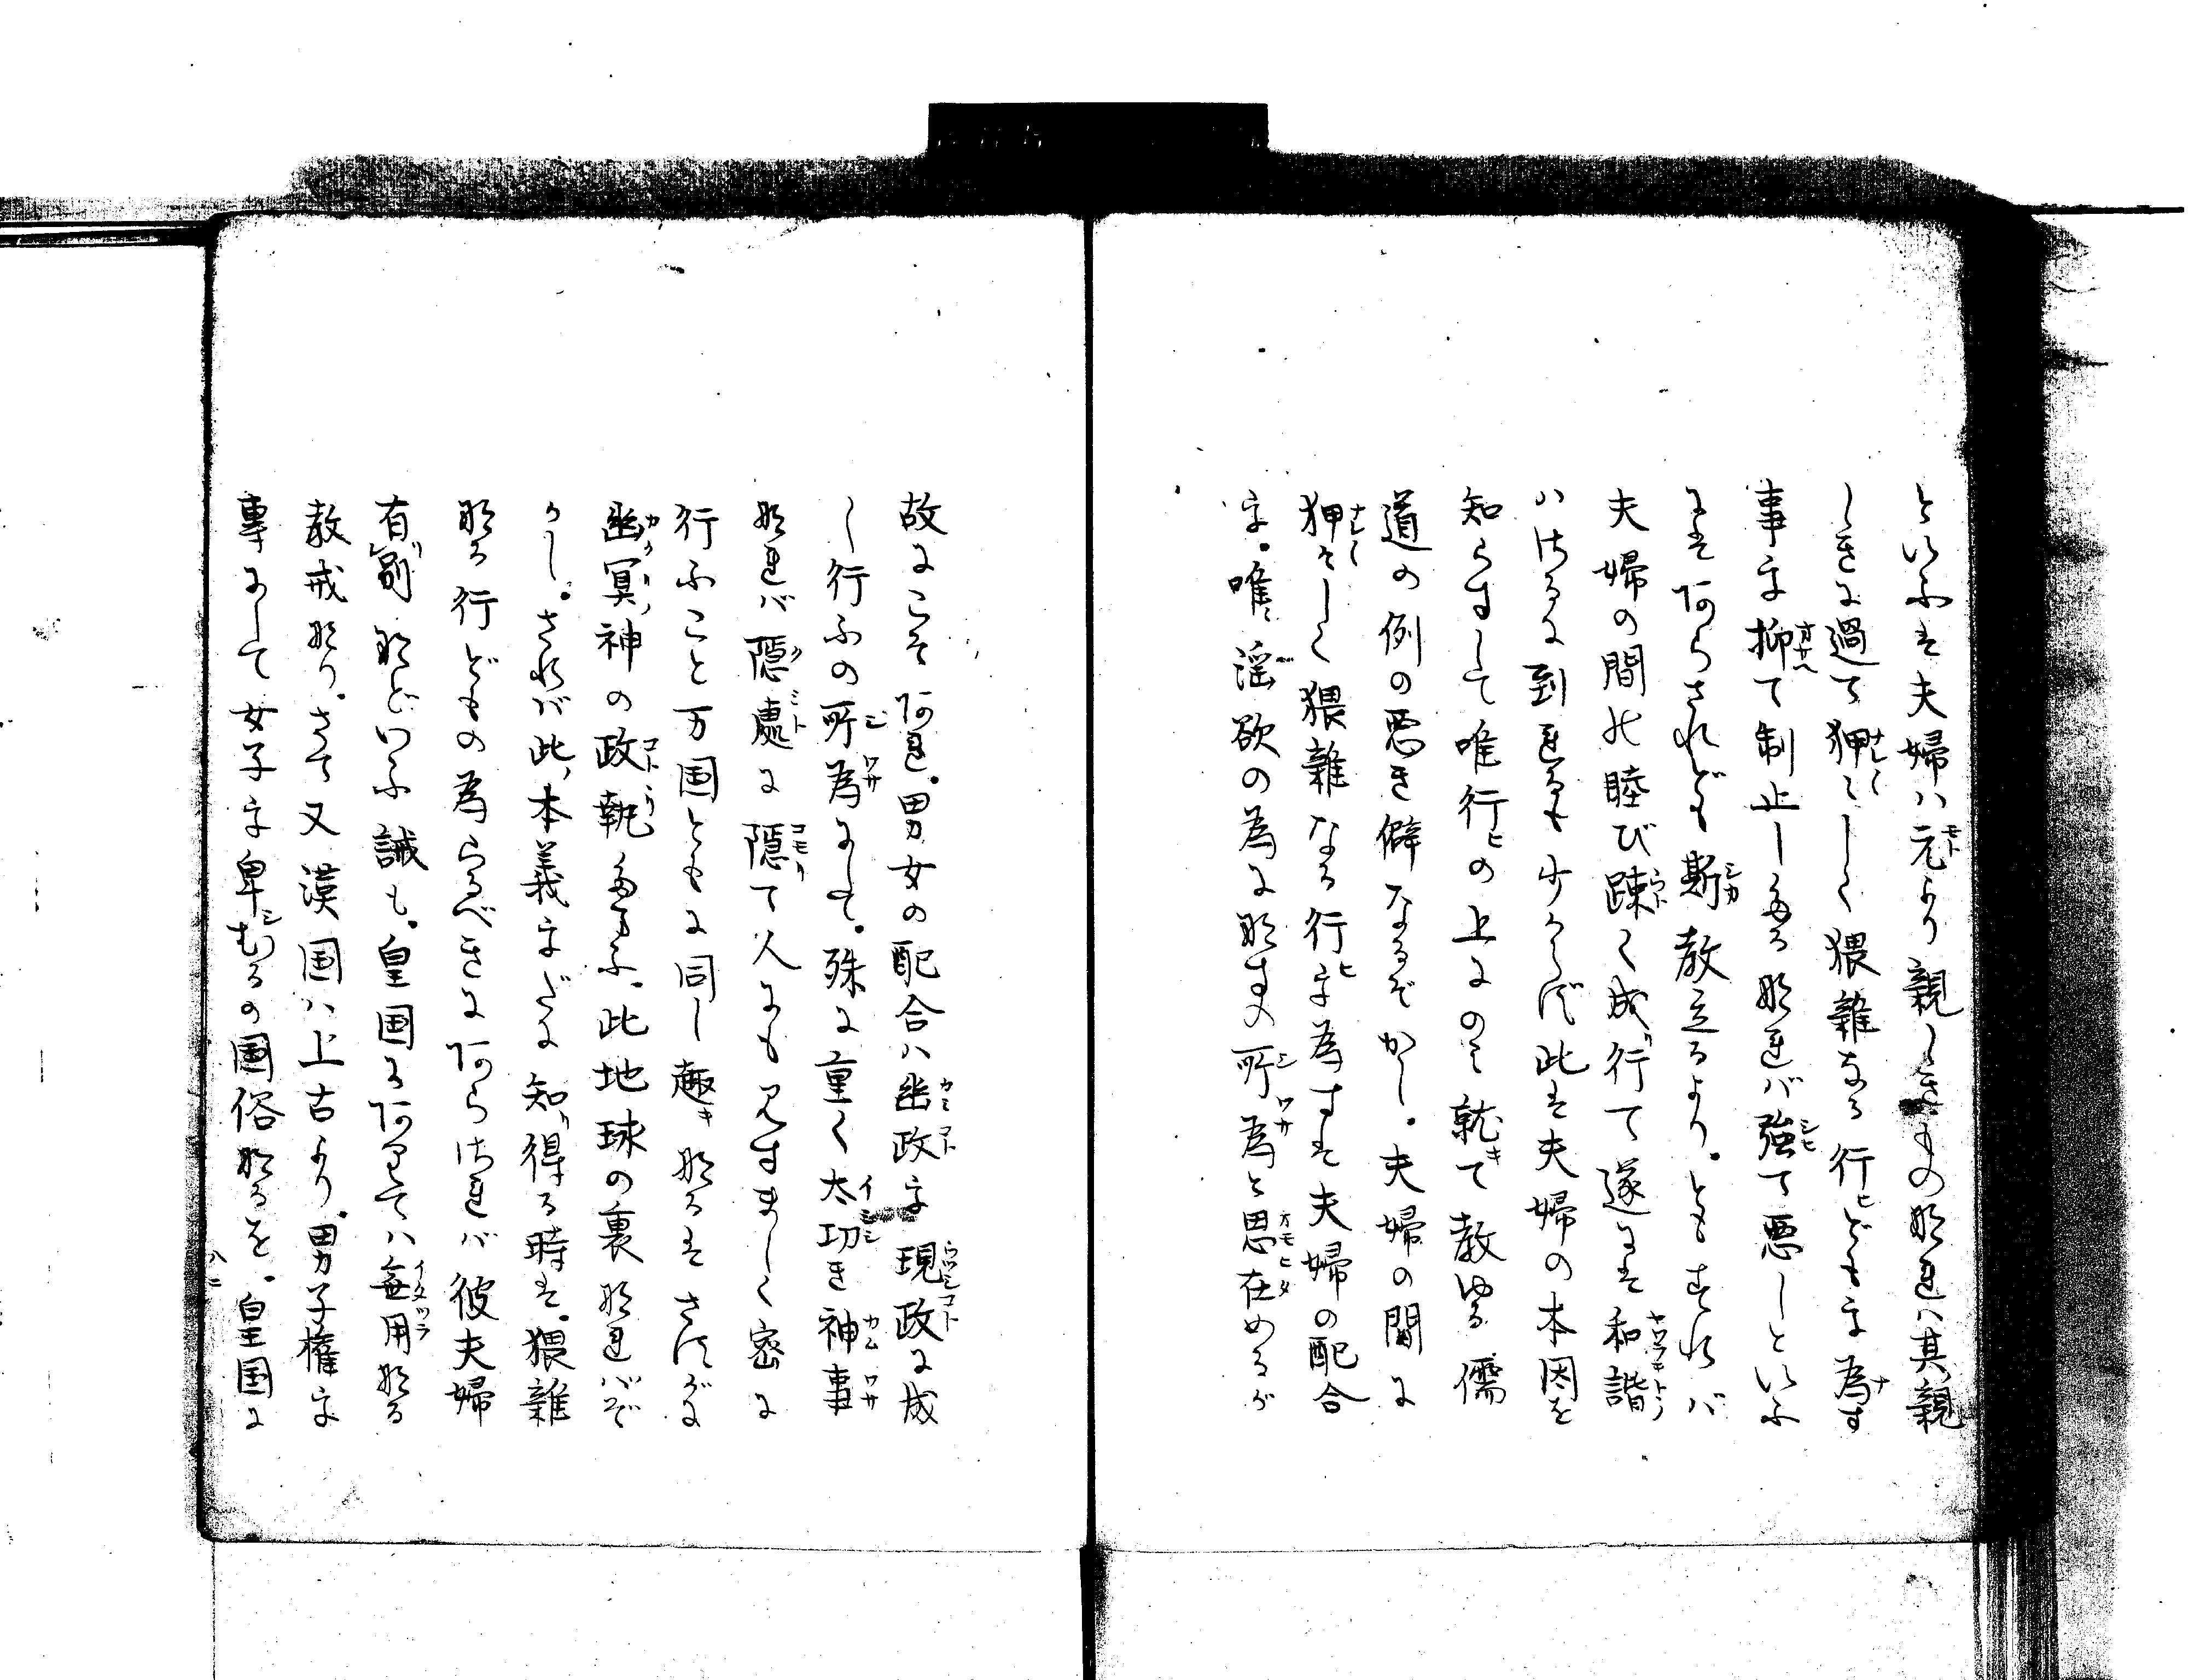 といふは夫婦ハ元より親しきもの那れハ其親
しきに過て狎々しく猥雑なる行どもを為す
事を抑て制止したる那れバ強て悪しといふ
にはあらざれども斯教立るより。ともすれバ
夫婦の間の睦び踈く成行て遂には和諧
ハざるに到れるも少からず此は夫婦の本因を
知らずして唯行の上にのみ就て教ゆる儒
道の例の悪き僻なるぞかし。夫婦の間に
狎々しく猥雑なる行を為すは夫婦の配合
を。唯淫欲の為に那すの所為と思在めるが
故にこそあれ。男女の配合ハ幽政を現政に成
し行ふの所為にして。殊に重く太切き神事
那れバ隠處に隠て人にも見すまじく密に
行ふこと万国ともに同し趣那るはさすがに
幽冥神の政執たまふ。此地球の裏那れバぞ
かし。されバ此本義をだに知得る時は。猥雑
那る行どもの為らるべきにあらざれバ彼夫婦
有別那どいふ誡も。皇国にありてハ無用那る
教戒那り。さて又漢国ハ上古より。男子権を
専にして女子を卑むるの国俗那るを。皇国に